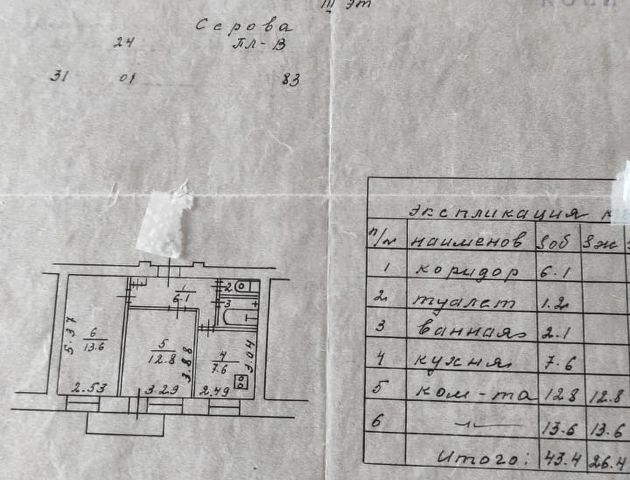 III эт
Серова
24 пл-В
31 01 83
экспликация к
п/п наименов Sоб Sж
1 коридор 6.1
2 туалет 1.2
3 ванная 2.1
4 кухня 7.6
5 ком-та 12.8 12.8
6 -〃- 13.6 13.6
Итого: 43.4 26.4
1
6.1
2
3
6
13.6
5.37
5
12.8
3.88
4
7.6
3.04
2.53 3.29 2.49